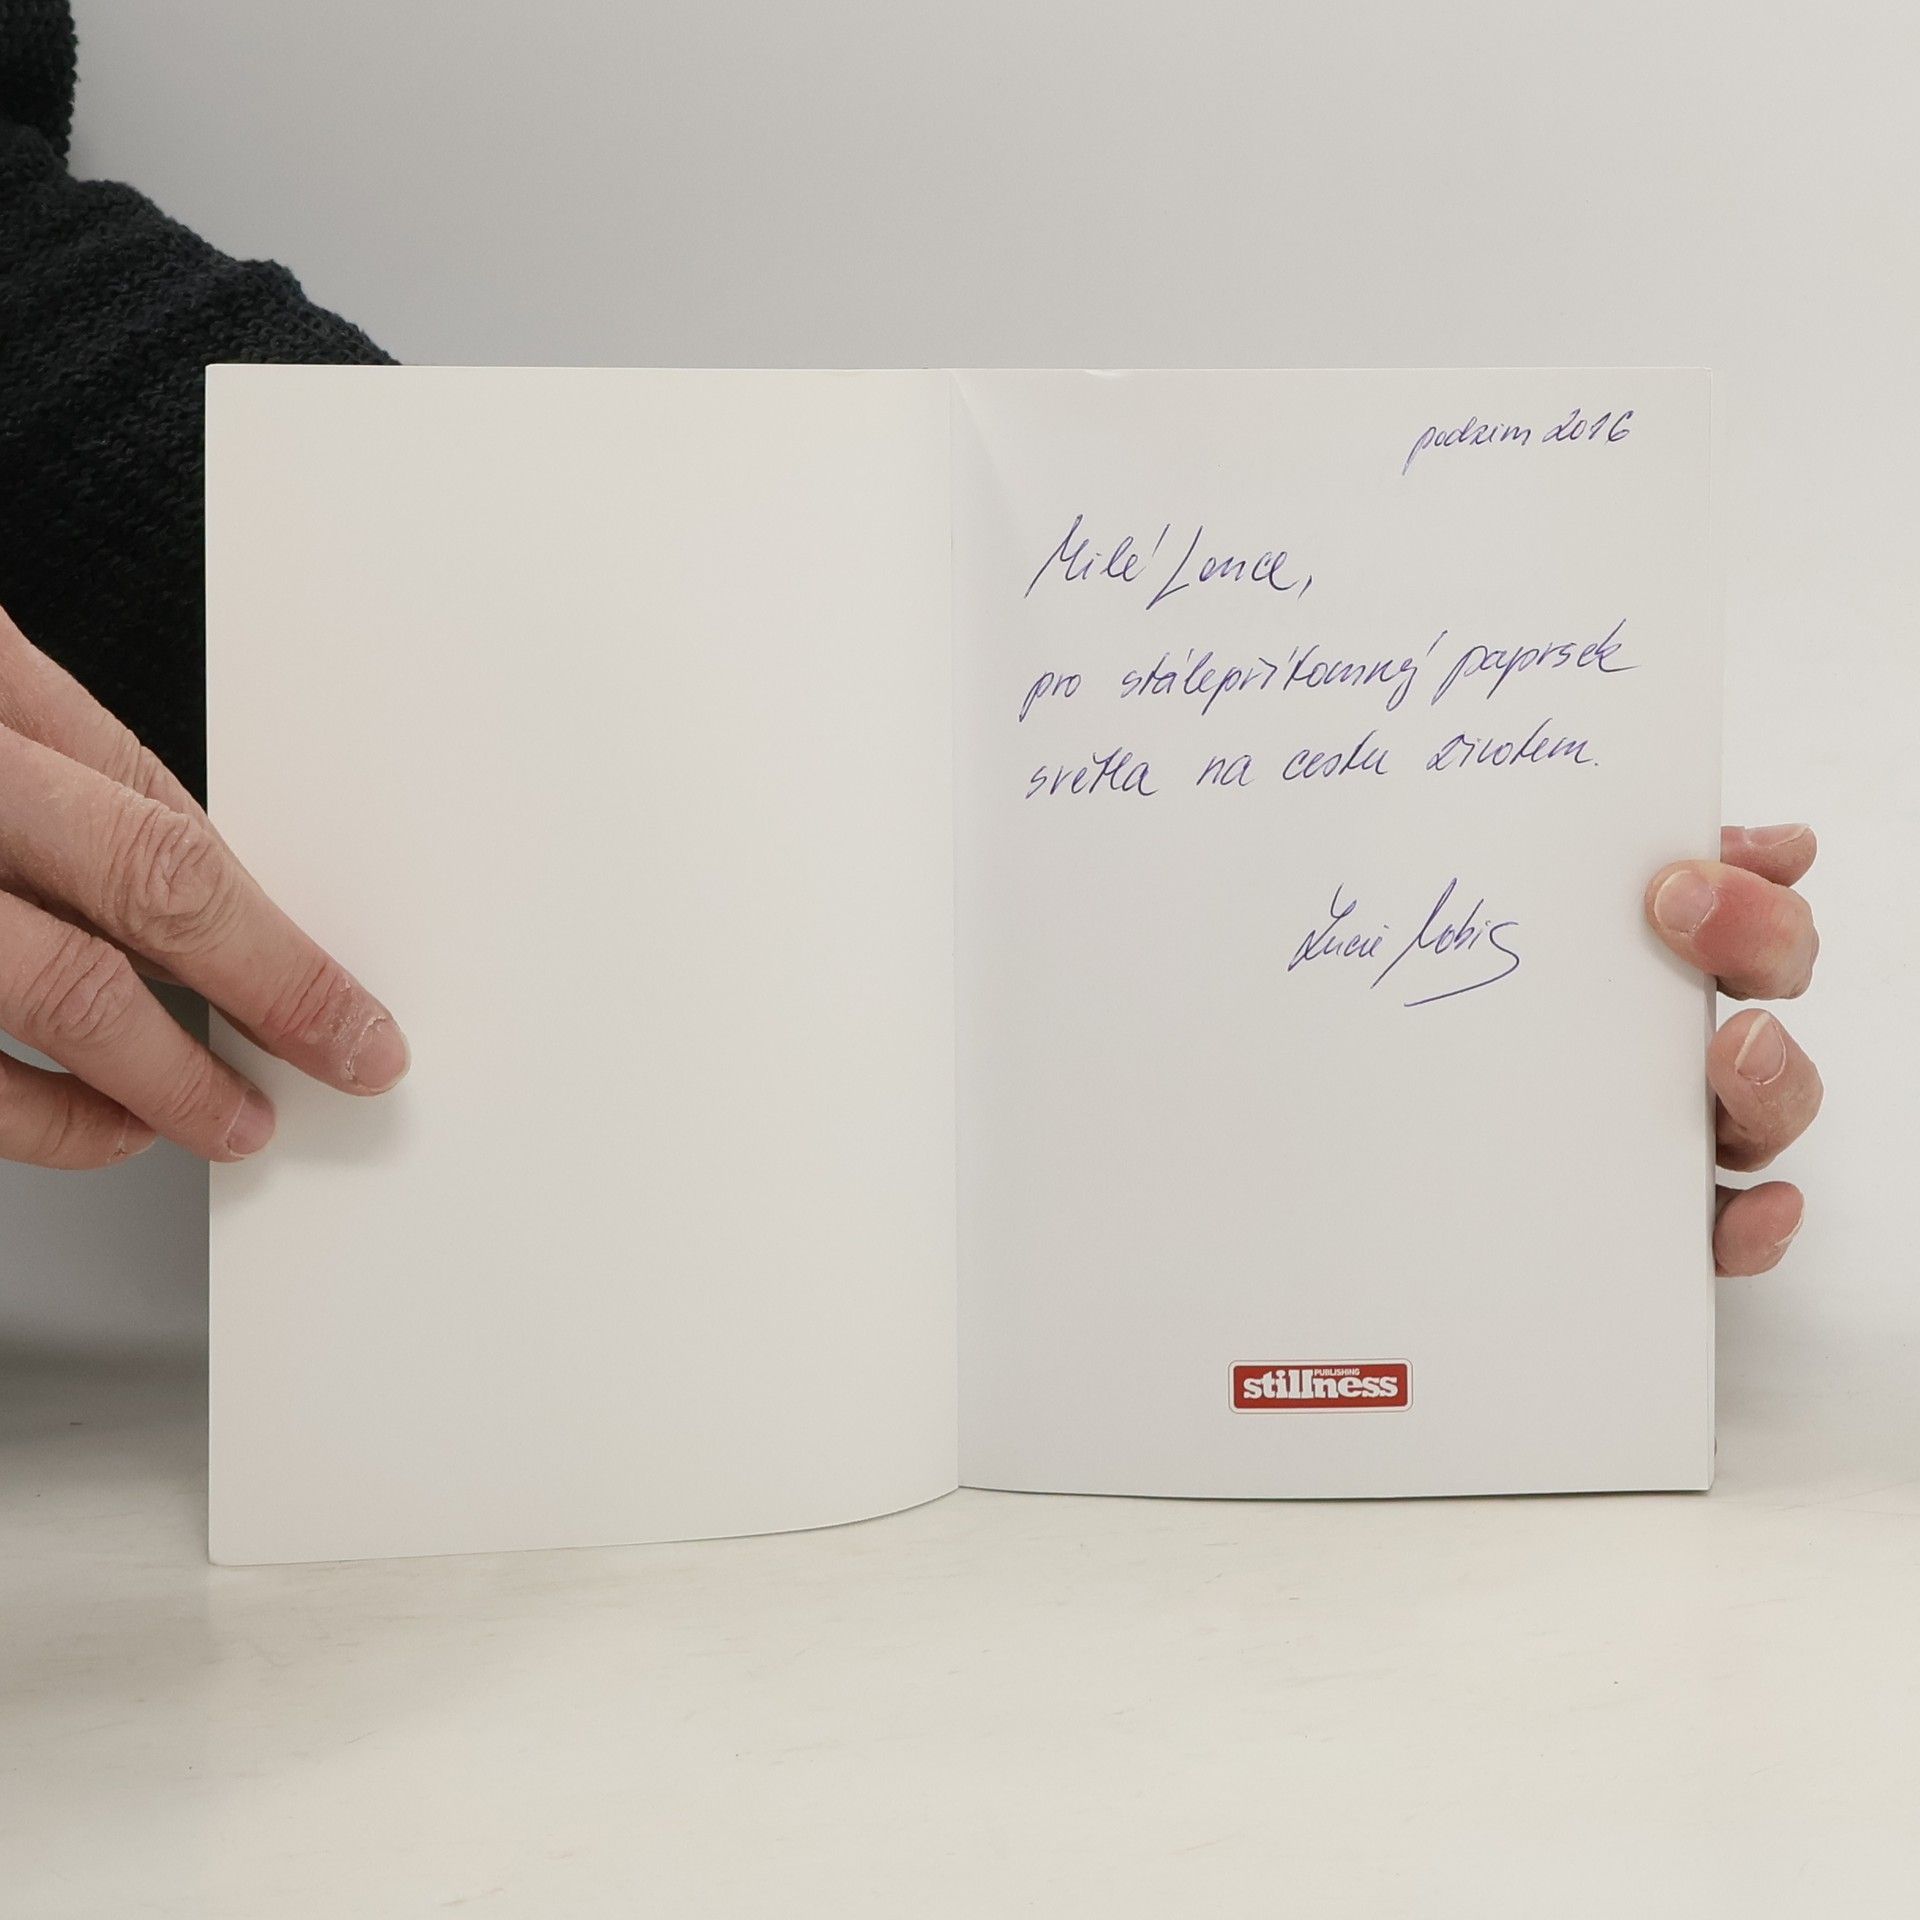 podzim 2016
Milé Lence,
pro stálepřítomný paprsek
světla na cestu životem.
Lucie
PUBLISHING
stillness